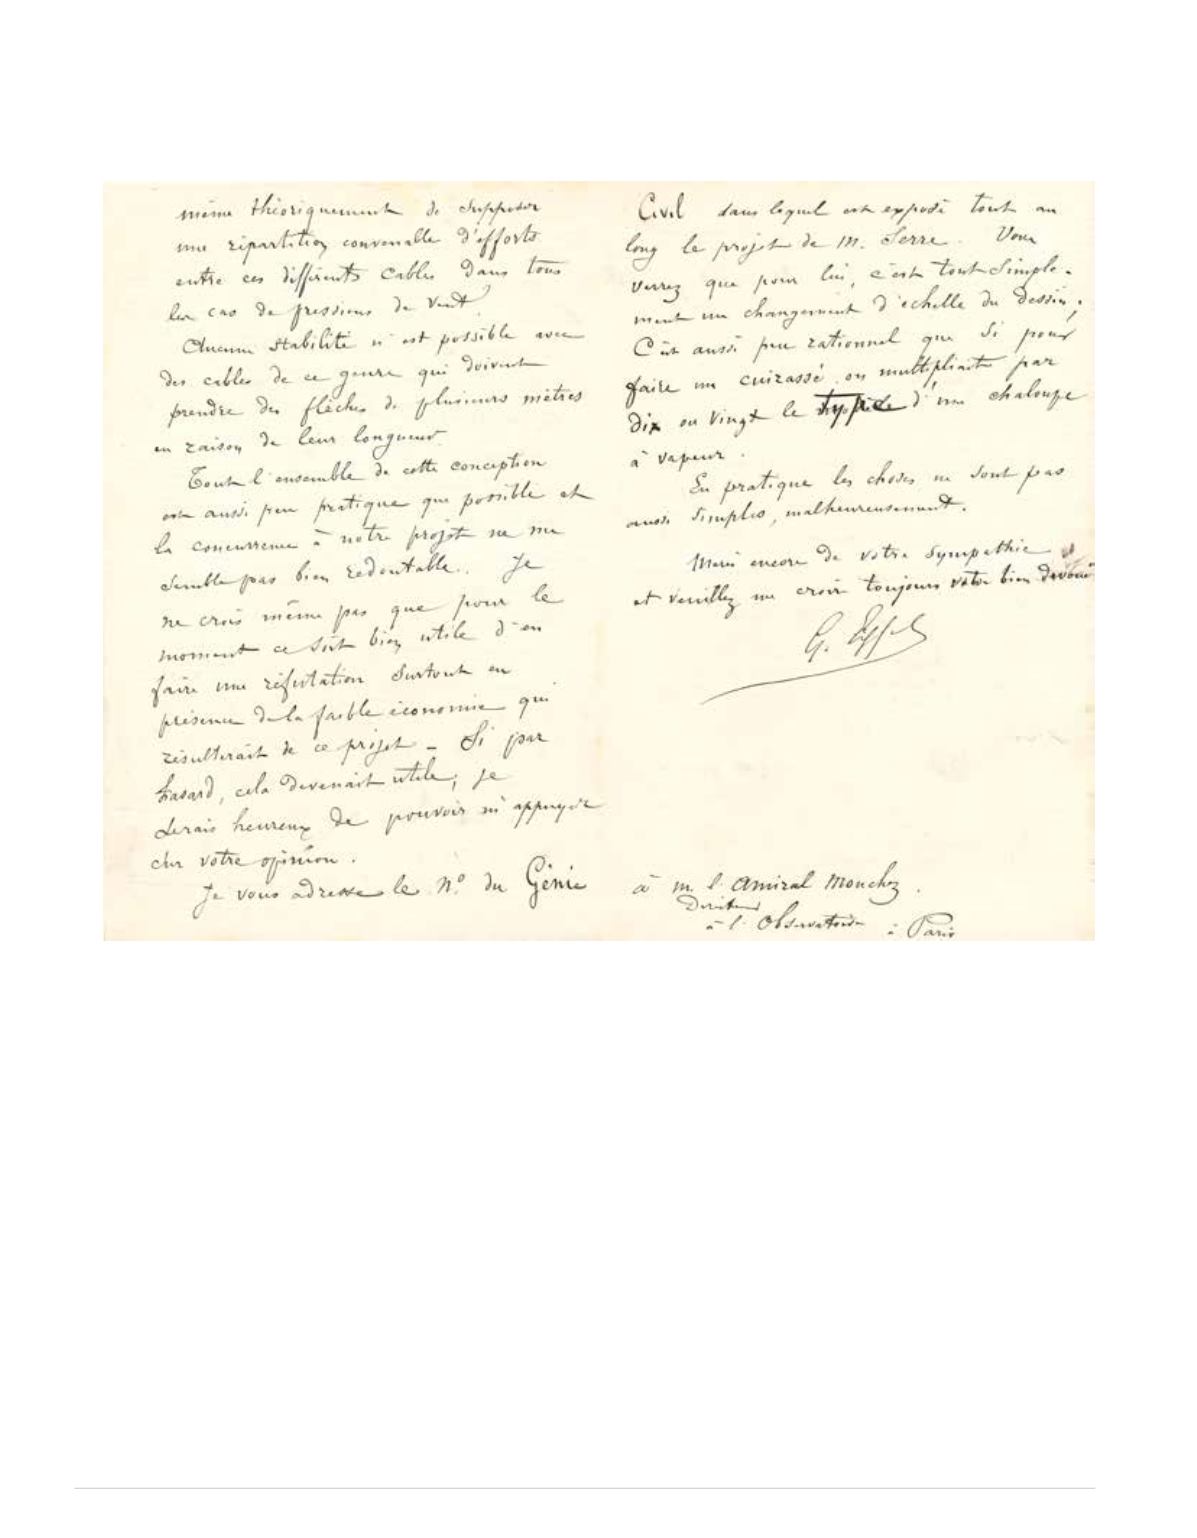 même théoriquement de supposer
une répartition convenable d'efforts
entre ces différents cables dans tous
les cas de pressions de vent
Aucune stabilité n'est possible avec
des cables de ce genre qui doivent
prendre des flèches de plusieurs mètres
en raison de leur longueur.
Tout l'ensemble de cette conception
est aussi peu pratique que possible et
la concurrence à notre projet ne me
semble pas bien redoutable. Je
ne crois même pas que pour le
moment ce soit bien utile d'en
faire une réfutation surtout en
présence de la faible économie qui
résulterait de ce projet - Si par
hasard, cela devenait utile, je
serais heureux de pouvoir m'appuyer
sur votre opinion.
Je vous adresse le No du Génie
Civil dans lequel est exposé tout au
long le projet de M. Serre. Vous
verrez que pour lui, c'est tout simple-
ment un changement d'echelle du dessin;
C'est aussi peu rationnel que si pour
faire un cuirassé on multipliait par
dix ou vingt le d'une chaloupe
à vapeur.
En pratique les choses ne sont pas
aussi simples, malheureusement.
Merci encore de votre sympathie
et veuillez me croire toujours votre bien devoué
G. Eiffel
à M. l'Amiral Mouchez.
Directeur
à l'Observatoire à Paris